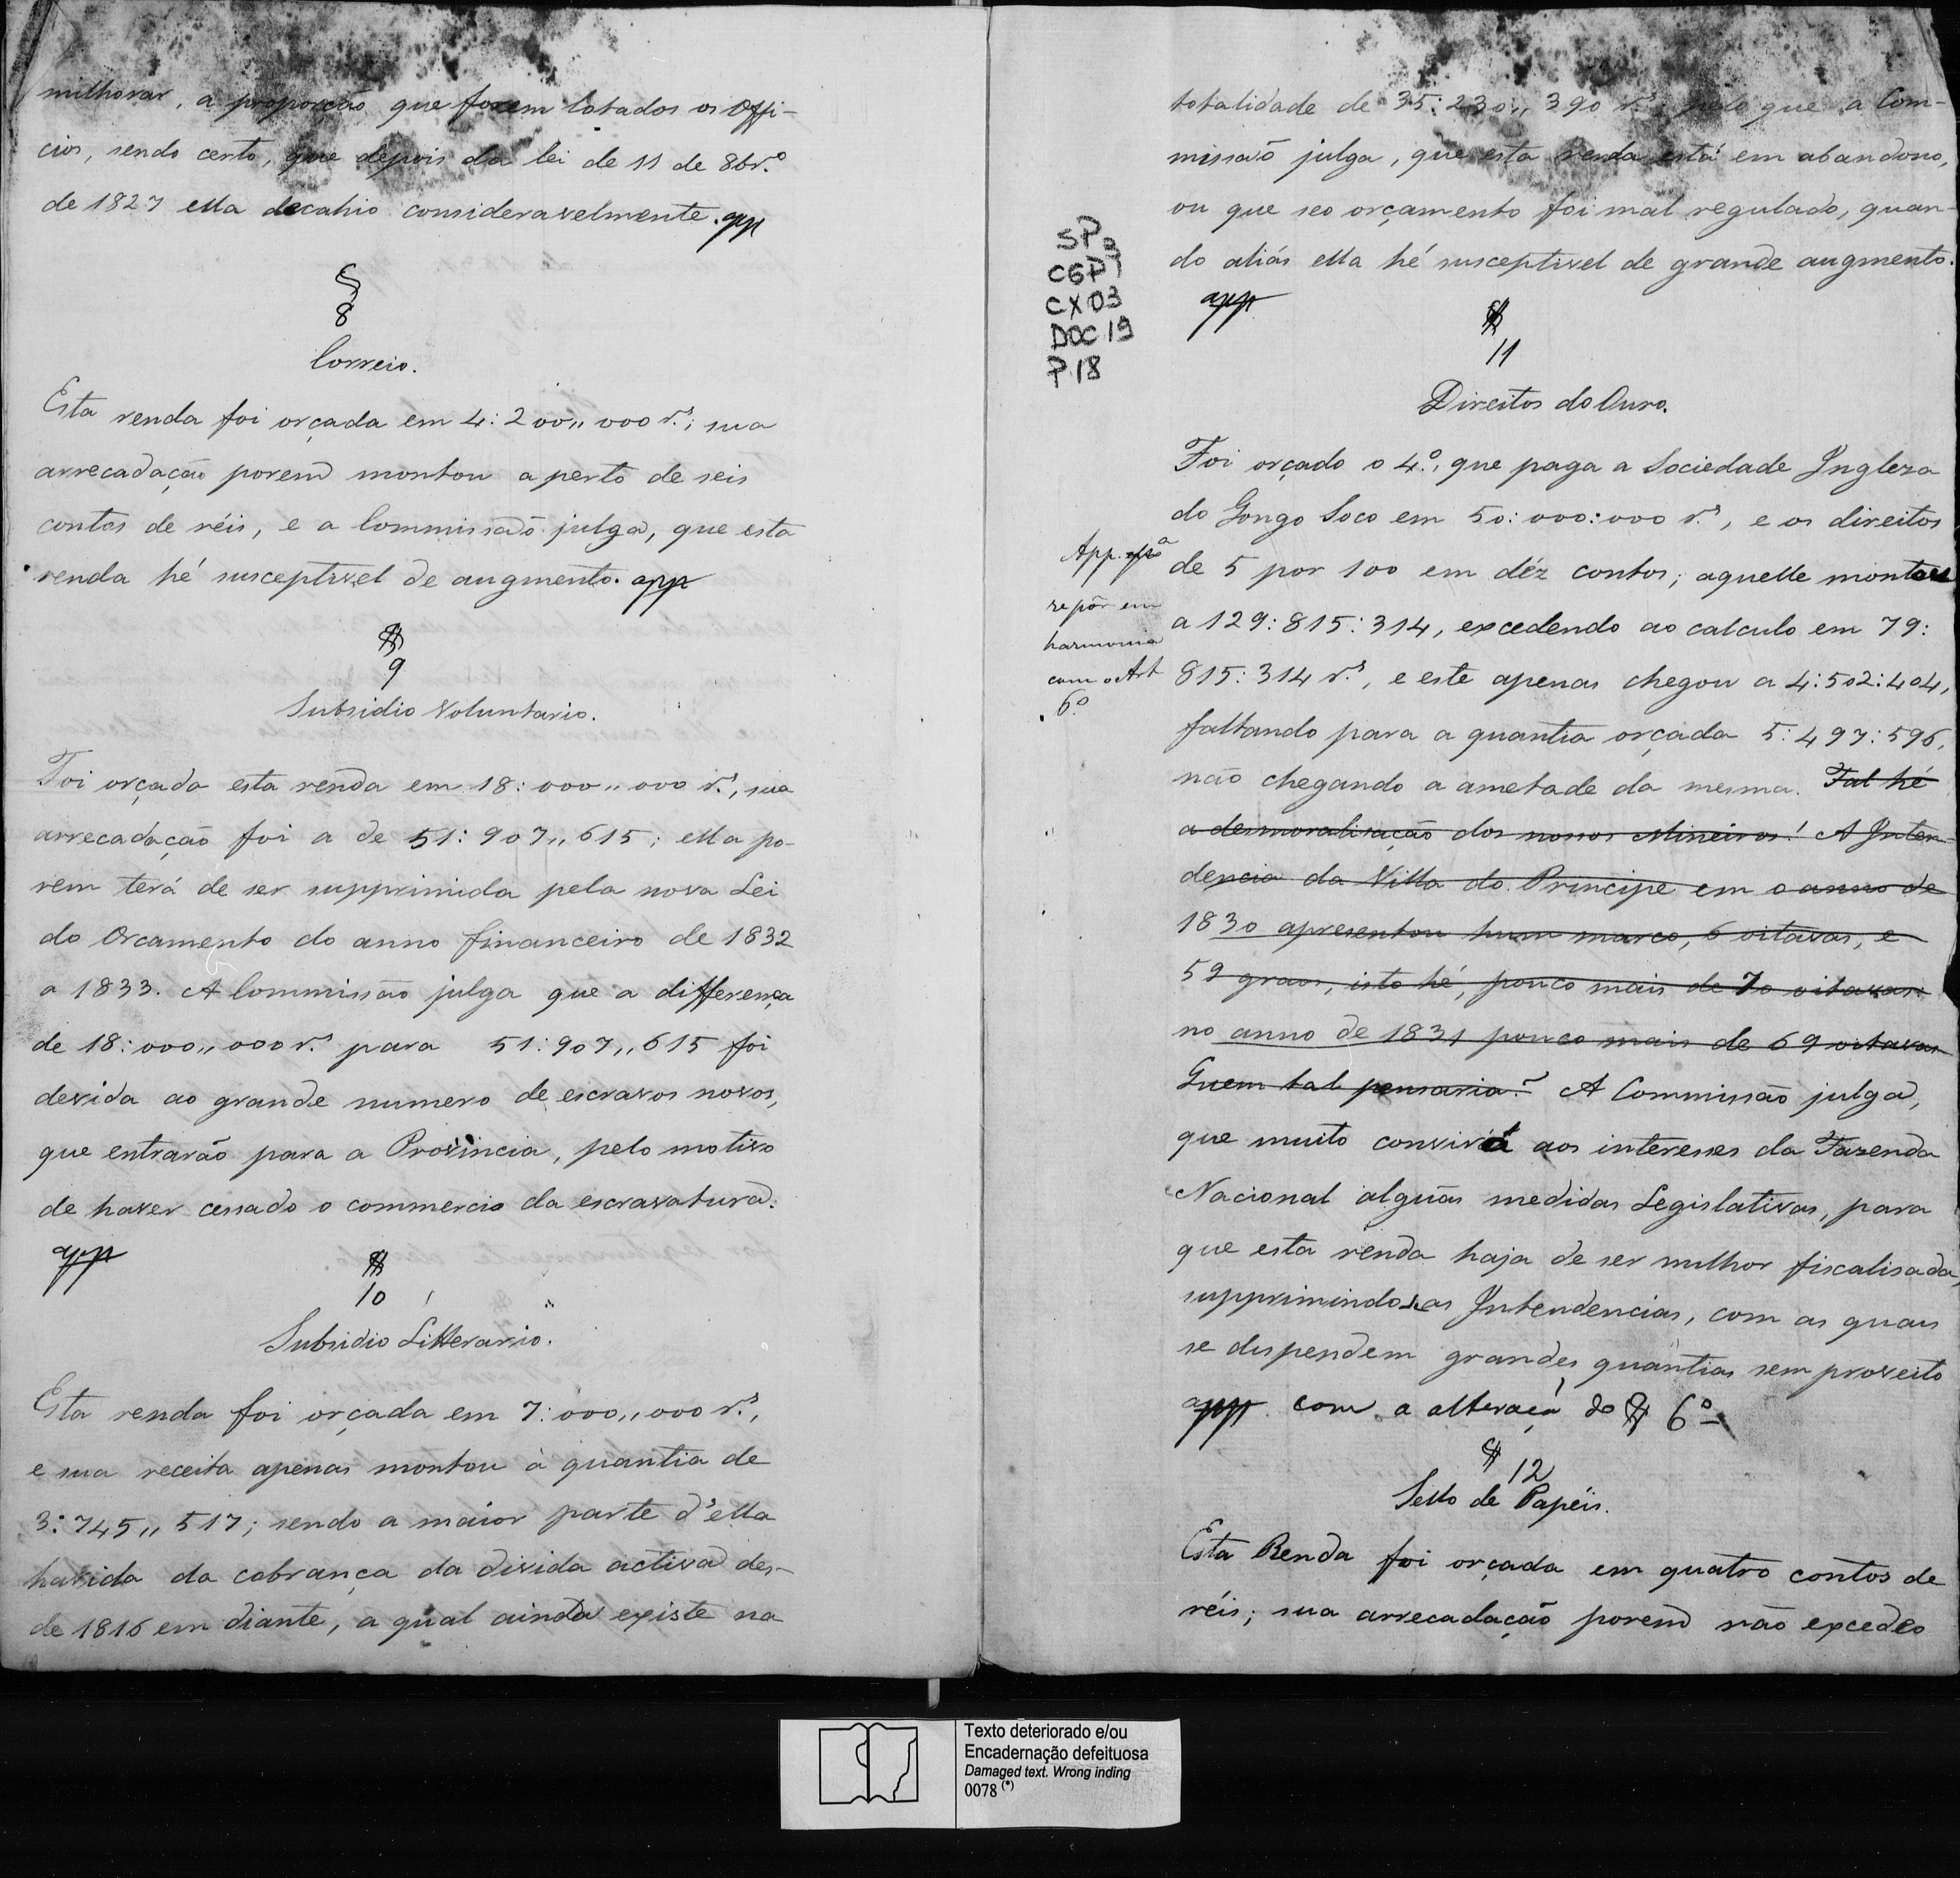 milhorar, a proporção que forem lotados os Offi-
cios, sendo certo, que depois da lei de 11 de 8br.º
de 1827 ella decahio consideravelmente. app
§
8
Correio.
Esta renda foi orçada em 4:200,,000 r.s; sua
arrecadação porem montou a perto de seis
contos de réis, e a Commissaõ julga, que esta
renda hé susceptivel de augmento. app
§
9
Subsidio Voluntario.
Foi orçada esta renda em 18:000,,000 r.s, sua
arrecadação foi a de 51:907,,615; ella po-
rem terá de ser supprimida pela nova Lei
do Orcamento do anno financeiro de 1832
a 1833. A Commissão julga que a differença
de 18:000,,000 r.s para 51:907,,615 foi
devida ao grande numero de escravos novos,
que entrarão para a Provincia, pelo motivo
de haver cessado o commercio da escravatura.
app
§
10
Subsidio Litterario.
Esta renda foi orçada em 7:000,,000 r.s,
e sua receita apenas montou à quantia de
3:745,,517; sendo a maior parte d'ella
havida da cobrança da divida activa des-
de 1816 em diante, a qual ainda existe na
totalidade de 35:230,,390 r.s pelo que a Com-
missaõ julga, que esta renda está em abandono,
ou que seo orçamento foi mal regulado, quan-
do aliás ella hé susceptivel de grande augmento.
app
SP
CGP
CX 03
DOC 19
P 18
§
11
Direitos do Ouro.
Foi orçado o 4.º, que paga a Sociedade Ingleza
do Gongo Soco em 50:000:000 r.s, e os direitos
de 5 por 100 em déz contos; aquelle montou
a 129:815:314, excedendo ao calculo em 79:
815:314 r.s, e este apenas chegou a 4:502:404,
faltando para a quantia orçada 5:497:596,
não chegando a ametade da mesma. Tal hé
a desmoralisação dos nossos Mineiros! A Inten-
dencia da Villa do Principe em o anno de
1830 apresentou hum marco, 6 oitavas, e
59 graos, isto hé, pouco mais de 70 oitavas:
no anno de 1831 pouco mais de 69 oitavas
Quem tal pensaria? A Commissão julga,
que muito convirá aos interesses da Fazenda
Nacional alguãs medidas Legislativas, para
que esta renda haja de ser milhor fiscalisada,
supprimindo se as Intendencias, com as quaes
se dispendem grandes quantias sem proveito
app com a alteraçã do § 6º
App.
se pôr em
harmonia
com o Art
6º
§ 12
Sello de Papéis.
Esta Renda foi orçada em quatro contos de
réis; sua arrecadação porem não excedeo
Texto deteriorado e/ou
Encadernação defeituosa
Damaged text. Wrong inding
0078 (*)